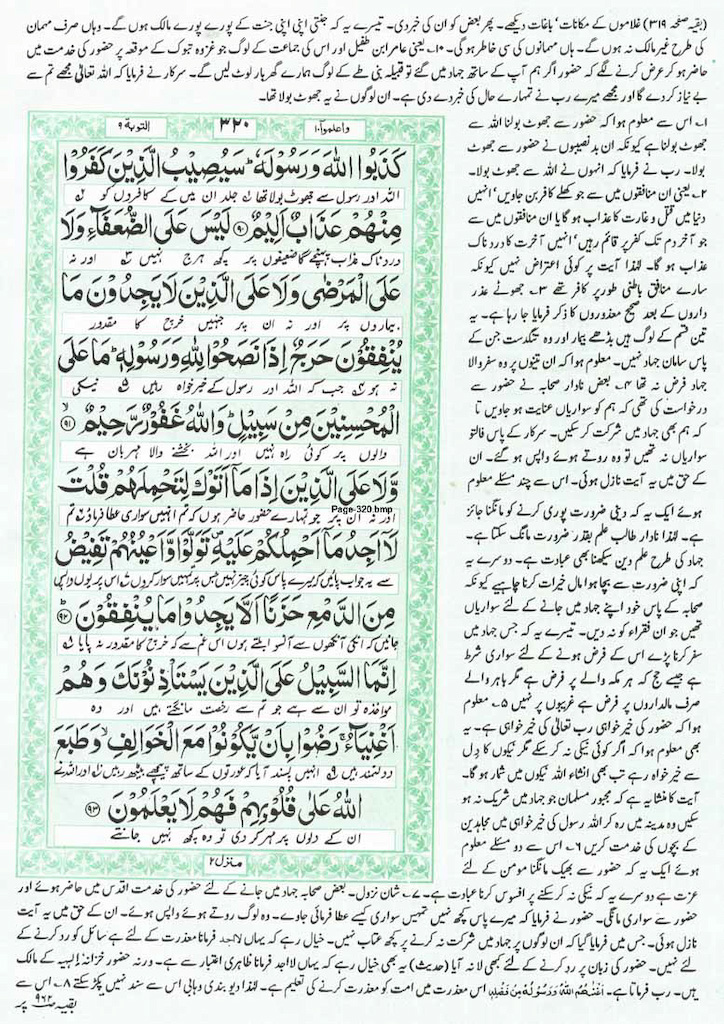 (بقیہ صفحہ ۳۱۹) غلاموں کے مکانات' باغات دیکھے۔ پھر بعض کو ان کی خبر دی۔ تیسرے یہ کہ جنتی اپنی اپنی جنت کے پورے پورے مالک ہوں گے۔ وہاں صرف مہمان
کی طرح غیر مالک نہ ہوں گے۔ ہاں مہمانوں کی سی خاطر ہو گی۔ ۱۰۔ یعنی عامر ابن طفیل اور اس کی جماعت کے لوگ جو غزوہ تبوک کے موقعہ پر حضور کی خدمت میں
حاضر ہو کر عرض کرنے لگے کہ حضور اگر ہم آپ کے ساتھ جہاد میں گئے تو قبیلہ بنی طے کے لوگ ہمارے گھر بار لوٹ لیں گے۔ سرکار نے فرمایا کہ اللہ تعالیٰ مجھے تم سے
بے نیاز کر دے گا اور مجھے میرے رب نے تمہارے حال کی خبر دے دی ہے۔ ان لوگوں نے یہ جھوٹ بولا تھا۔
واعلموا ۱۰
۳۲۰
التوبة ۹
كَذَبُوا اللّٰهَ وَرَسُوْلَهٗ ؕ سَيُصِيْبُ الَّذِيْنَ كَفَرُوْا
اللہ اور رسول سے جھوٹ بولا تھا جلد ان میں کے کافروں کو
مِنْهُمْ عَذَابٌ اَلِيْمٌ ۹۰ لَيْسَ عَلَى الضُّعَفَآءِ وَلَا
دردناک عذاب پہنچے گا ضعیفوں پر کچھ حرج نہیں اور نہ
عَلَى الْمَرْضٰى وَلَا عَلَى الَّذِيْنَ لَا يَجِدُوْنَ مَا
بیماروں پر اور نہ ان پر جنہیں خرچ کا مقدور
يُنْفِقُوْنَ حَرَجٌ اِذَا نَصَحُوْا لِلّٰهِ وَرَسُوْلِهٖ ؕ مَا عَلَى
نہ ہو جب کہ اللہ اور رسول کے خیر خواہ رہیں نیکی
الْمُحْسِنِيْنَ مِنْ سَبِيْلٍ ؕ وَاللّٰهُ غَفُوْرٌ رَّحِيْمٌ ۹۱
والوں پر کوئی راہ نہیں اور اللہ بخشنے والا مہربان ہے
وَّلَا عَلَى الَّذِيْنَ اِذَا مَاۤ اَتَوْكَ لِتَحْمِلَهُمْ قُلْتَ
Page-320.bmp
اور نہ ان پر جو تمہارے حضور حاضر ہوں کہ تم انہیں سواری عطا فرماؤ تم
لَاۤ اَجِدُ مَاۤ اَحْمِلُكُمْ عَلَيْهِ تَوَلَّوْا وَّاَعْيُنُهُمْ تَفِيْضُ
سے یہ جواب پائیں کہ میرے پاس کوئی چیز نہیں جس پر تمہیں سوار کروں اس پر یوں واپس
مِنَ الدَّمْعِ حَزَنًا اَلَّا يَجِدُوْا مَا يُنْفِقُوْنَ ۹۲
جائیں کہ انکی آنکھوں سے آنسو ابلتے ہوں اس غم سے کہ خرچ کا مقدور نہ پایا
اِنَّمَا السَّبِيْلُ عَلَى الَّذِيْنَ يَسْتَاْذِنُوْنَكَ وَهُمْ
مواخذہ تو ان سے ہے جو تم سے رخصت مانگتے ہیں اور وہ
اَغْنِيَآءُ ۚ رَضُوْا بِاَنْ يَّكُوْنُوْا مَعَ الْخَوَالِفِ ۙ وَطَبَعَ
دولتمند ہیں انہیں پسند آیا کہ عورتوں کے ساتھ پیچھے بیٹھ رہیں اور اللہ نے
اللّٰهُ عَلٰى قُلُوْبِهِمْ فَهُمْ لَا يَعْلَمُوْنَ ۹۳
ان کے دلوں پر مہر کر دی تو وہ کچھ نہیں جانتے
منزل ۲
۱۔ اس سے معلوم ہوا کہ حضور سے جھوٹ بولنا اللہ سے
جھوٹ بولنا ہے کیونکہ ان بدنصیبوں نے حضور سے جھوٹ
بولا۔ رب نے فرمایا کہ انہوں نے اللہ سے جھوٹ بولا۔
۲۔ یعنی ان منافقوں میں سے جو کھلے کافر بن جاویں' انہیں
دنیا میں قتل و غارت کا عذاب ہو گا یا ان منافقوں میں سے
جو آخر دم تک کفر پر قائم رہیں' انہیں آخرت کا دردناک
عذاب ہو گا۔ لہٰذا آیت پر کوئی اعتراض نہیں کیونکہ
سارے منافق باطنی طور پر کافر تھے ۳۔ جھوٹے عذر
داروں کے بعد صحیح معذوروں کا ذکر فرمایا جا رہا ہے۔ یہ
تین قسم کے لوگ ہیں بڈھے بیمار اور وہ تنگدست جن کے
پاس سامان جہاد نہیں۔ معلوم ہوا کہ ان تینوں پر وہ سفر والا
جہاد فرض نہ تھا ۴۔ بعض نادار صحابہ نے حضور سے
درخواست کی تھی کہ ہم کو سواریاں عنایت ہو جاویں تا
کہ ہم بھی جہاد میں شرکت کر سکیں۔ سرکار کے پاس فالتو
سواریاں نہ تھیں تو وہ روتے ہوئے واپس ہو گئے۔ ان
کے حق میں یہ آیت نازل ہوئی۔ اس سے چند مسئلے معلوم
ہوئے ایک یہ کہ دینی ضرورت پوری کرنے کو مانگنا جائز
ہے۔ لہٰذا نادار طالب علم بقدر ضرورت مانگ سکتا ہے۔
جہاد کی طرح علم دین سیکھنا بھی عبادت ہے۔ دوسرے یہ
کہ اپنی ضرورت سے بچا ہوا مال خیرات کرنا چاہیے کیونکہ
صحابہ کے پاس خود اپنے جہاد میں جانے کے لئے سواریاں
تھیں جو ان فقراء کو نہ دیں۔ تیسرے یہ کہ جس جہاد میں
سفر کرنا پڑے اس کے فرض ہونے کے لئے سواری شرط
ہے جیسے حج کہ ہر مکہ والے پر فرض ہے مگر باہر والے
صرف مالداروں پر فرض ہے غریبوں پر نہیں ۵۔ معلوم
ہوا کہ حضور کی خیر خواہی رب تعالیٰ کی خیر خواہی ہے۔ یہ
بھی معلوم ہوا کہ اگر کوئی نیکی نہ کر سکے مگر نیکوں کا دل
سے خیر خواہ رہے تب بھی انشاء اللہ نیکوں میں شمار ہو گا۔
آیت کا منشا یہ ہے کہ مجبور مسلمان جو جہاد میں شریک نہ ہو
سکیں وہ مدینہ میں رہ کر اللہ رسول کی خیر خواہی میں مجاہدین
کے بچوں کی خدمت کریں ۶۔ اس سے دو مسئلے معلوم
ہوئے ایک یہ کہ حضور سے بھیک مانگنا مومن کے لئے
عزت ہے دوسرے یہ کہ نیکی نہ کر سکنے پر افسوس کرنا عبادت ہے۔ ۷۔ شان نزول۔ بعض صحابہ جہاد میں جانے کے لئے حضور کی خدمت اقدس میں حاضر ہوئے اور
حضور سے سواری مانگی۔ حضور نے فرمایا کہ میرے پاس کچھ نہیں تمہیں سواری کیسے عطا فرمائی جاوے۔ وہ لوگ روتے ہوئے واپس ہوئے۔ ان کے حق میں یہ آیت
نازل ہوئی۔ جس میں فرمایا گیا کہ ان لوگوں پر جہاد میں شرکت نہ کرنے پر کچھ عتاب نہیں۔ خیال رہے کہ یہاں لااجد فرمانا معذرت کے لئے ہے سائل کو رد کرنے کے
لئے نہیں۔ حضور کی زبان پر رد کرنے کے لئے کبھی لا نہ آیا (حدیث) یہ بھی خیال رہے کہ یہاں لااجد فرمانا ظاہری اعتبار سے ہے۔ ورنہ حضور خزانۂ الٰہیہ کے مالک
ہیں۔ رب فرماتا ہے۔ اَغْنٰهُمُ اللّٰهُ وَرَسُوْلُهٗ مِنْ فَضْلِهٖ اس معذرت میں امت کو معذرت کرنے کی تعلیم ہے۔ لہٰذا دیوبندی وہابی اس سے سند نہیں پکڑ سکتے ۸۔ اس سے
بقیہ ص ۹۶۲ پر